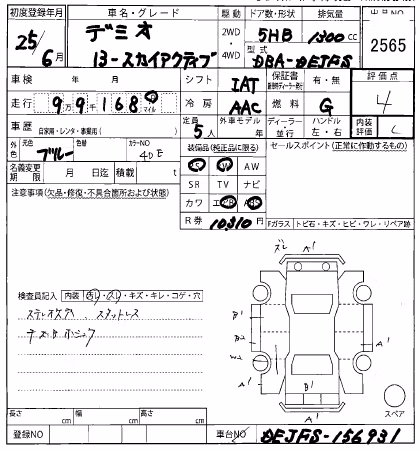 初度登録年月 車名・グレード 駆動 ドア数・形状 排気量 出品NO
25/6月 デミオ 2WD・4WD 5HB 1300cc 2565
13-スカイアクティブ 型式 DBA-DEJFS
車検 年 月 シフト IAT 保証書 有・無 評価点 4
走行 99168 マイル 冷房 AAC 燃料 G
車歴 自家用・レンタ・事業用( ) 定員 5人 外車モデル 年 ディーラー・並行 ハンドル 左・右 内装評価 C
外色 元色 ブルー 色替 カラーNO 40E 装備品(純正品に限る) セールスポイント(正常に作動するもの)
PS PW AW
名義変更期限 月 日迄 積載 t SR TV ナビ
注意事項(欠品・修復・不具合箇所および状態) カワ エアB ABS
R券 10310円 Fガラス トビ石・キズ・ヒビ・ワレ・リペア跡
ズレ A'
検査員記入 内装 キズ・キレ・コゲ・穴
B' B'
A' A'
B'
A'
スペア
長さ cm 幅 cm 高さ cm
登録NO 車台NO DEJFS-156931